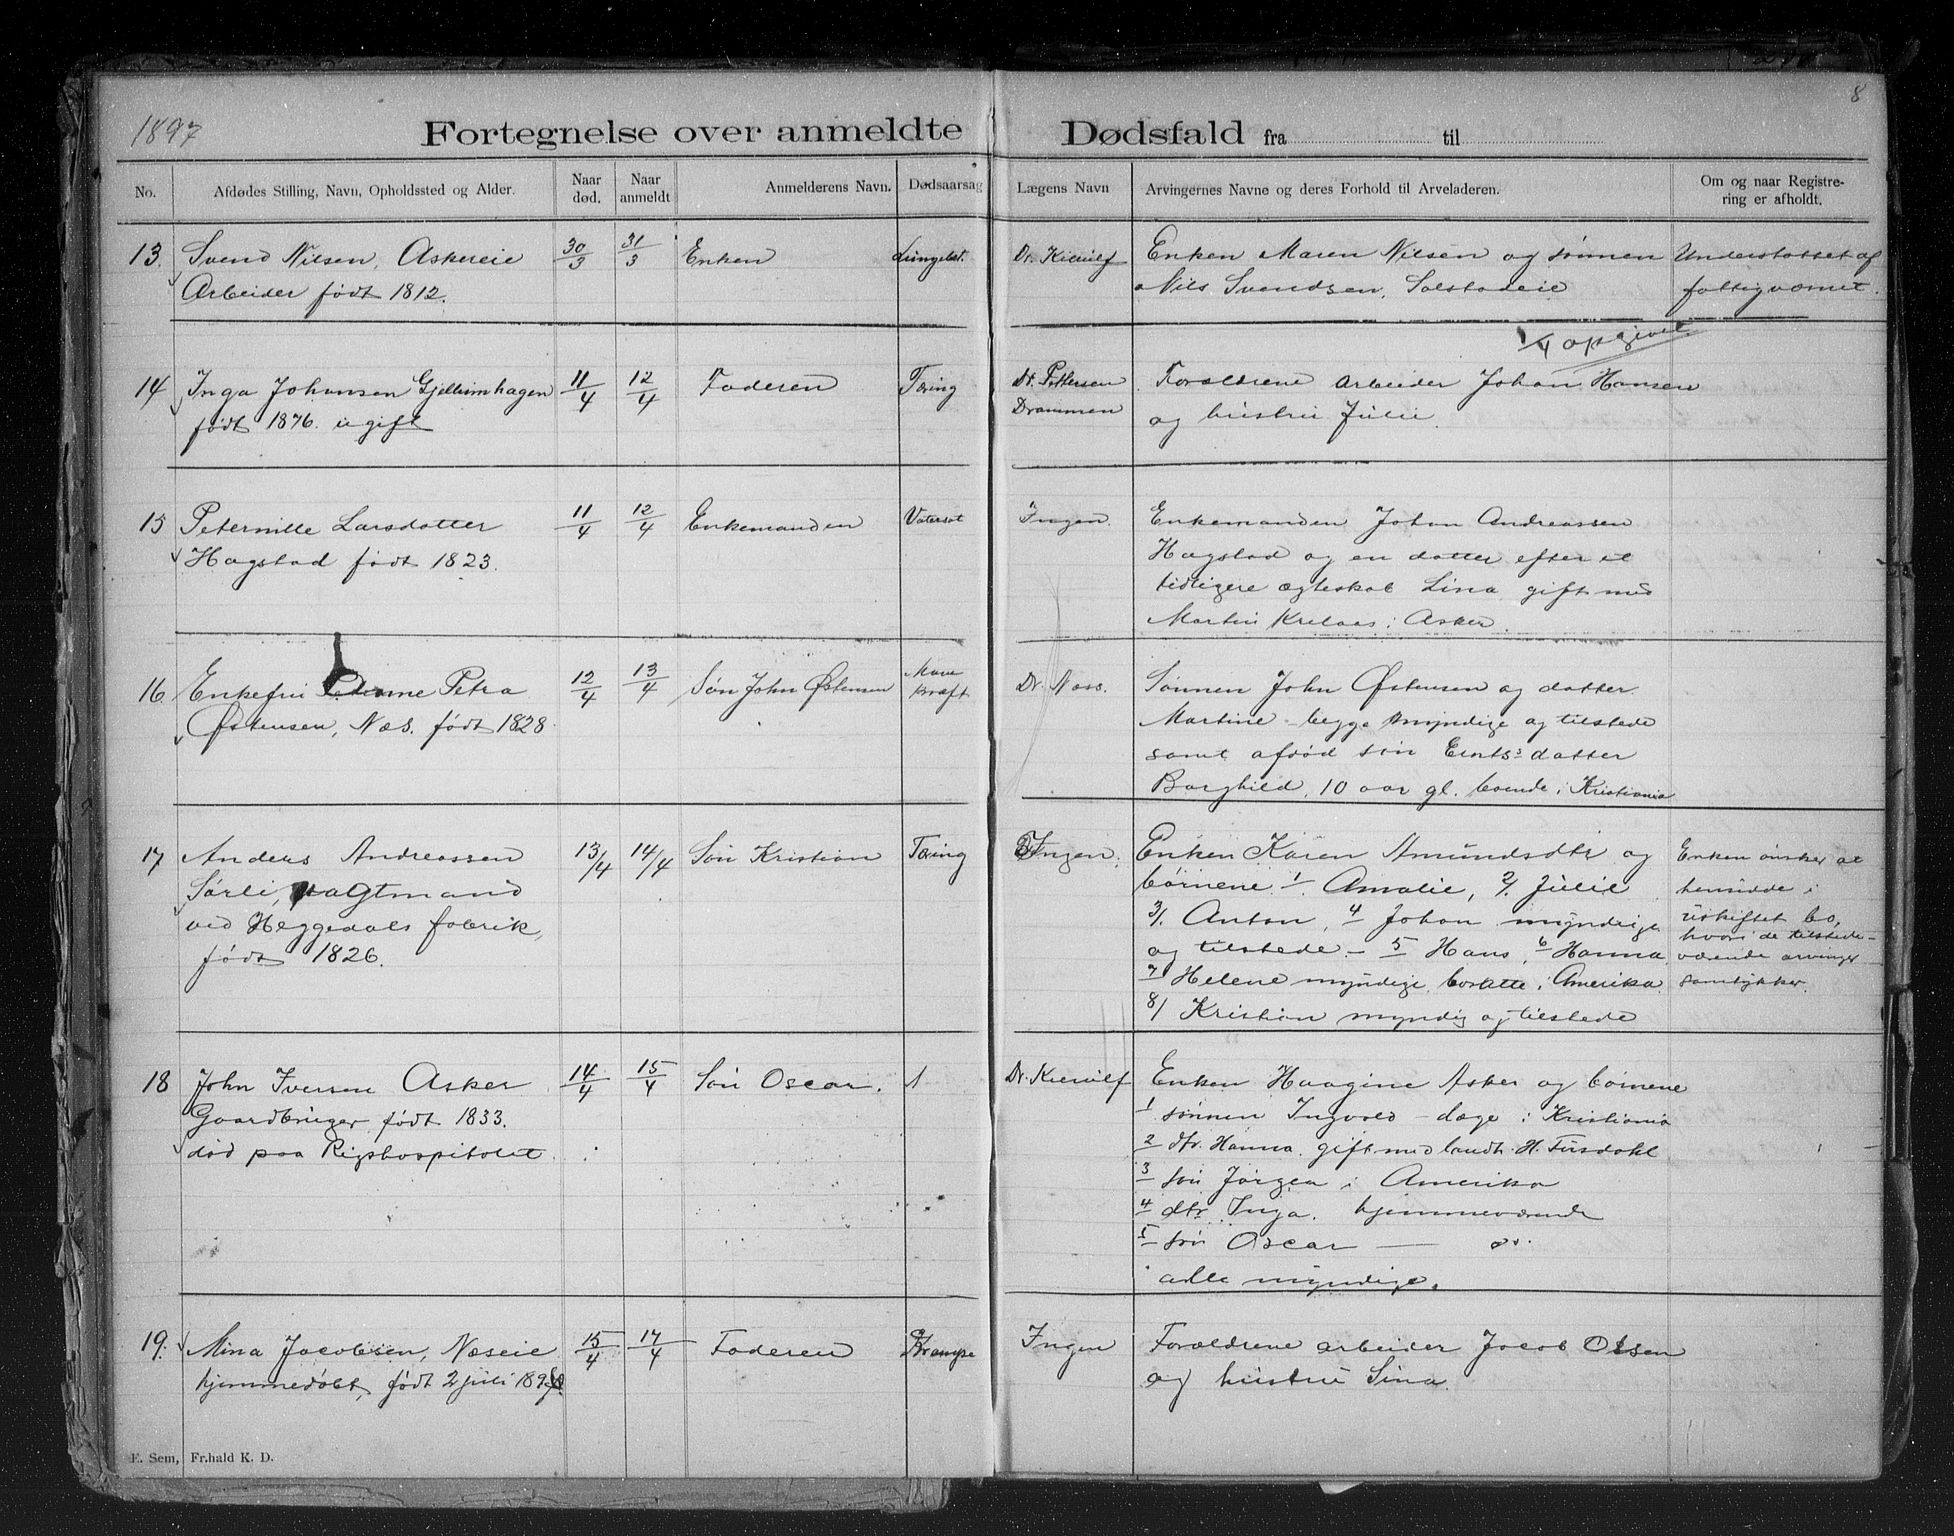 8
1897 Fortegnelse over anmeldte Dødsfald fra til
No. Afdødes Stilling, Navn, Opholdssted og Alder. Naar død. Naar anmeldt Anmelderens Navn. Dødsaarsag Lægens Navn Arvingernes Navne og deres Forhold til Arveladeren. Om og naar Registrering er afholdt.
13. Svend Nilsen, Askereie 30/3 31/3 Enken Dr. Kierulf Enken Maren Nilsen og sønnen Understøttet af
Arbeider født 1812. Nils Svendsen, Solstadeie fattigvæsnet.
1/4 opgivet
14 Inga Johansen Gjellumhagen 11/4 12/4 Faderen Tæring Dr. Pettersen Forældrene Arbeider Johan Hansen
født 1876. ugift Drammen og hustru Julie.
15 Peternille Larsdatter 11/4 12/4 Enkemanden Vatersot Ingen. Enkemanden Johan Andreassen
Hagstad født 1823. Hagstad og en datter efter et
tidligere ægteskab Lina, gift med
Martin Krelaas i Asker.
16 Enkefru Petra 12/4 13/4 Søn John Østensen Mave kræft Dr. Næss. Sønnen John Østensen og datter
Østensen, Næs. født 1828 Martine – begge myndige og tilstede
samt afdød søn datter
Borghild, 10 aar gl. boende i Kristiania
17 Anders Andreassen 13/4 14/4 Søn Kristian Tæring Ingen. Enken Karen Amundsdtr og Enken ønsker at
Sørli, vagtmand børnene 1. Amalie, 2/. Julie hensidde i
ved Heggedals fabrik, 3/. Anton, 4 Johan myndige uskiftet bo,
født 1826. og tilstede – 5 Hans, 6 Hanna hvori de tilstede-
7 Helene myndige, bosatte i Amerika. værende arvinger
8/ Kristian myndig og tilstede samtykker.
18 John Iversen Asker 14/4 15/4 Søn Oscar. Dr. Kierulf Enken Haagine Asker og børnene
Gaardbruger født 1833. 1 sønnen Ingvald – læge i Kristiania
død paa Rigshospitalet. 2 dtr. Hanna gift med landh. H. Tusdahl
3 søn Jørgen i Amerika
4 dtr Inga. hjemmeværende
5 søn Oscar — do.
alle myndige.
19. Mina Jacobsen, Næseie 15/4 17/4 Faderen Krampe Ingen Forældrene arbeider Jacob Olsen
hjemmedøbt, født 2 juli 189 og hustru Lina.
E. Sem, Fr.hald K. D.